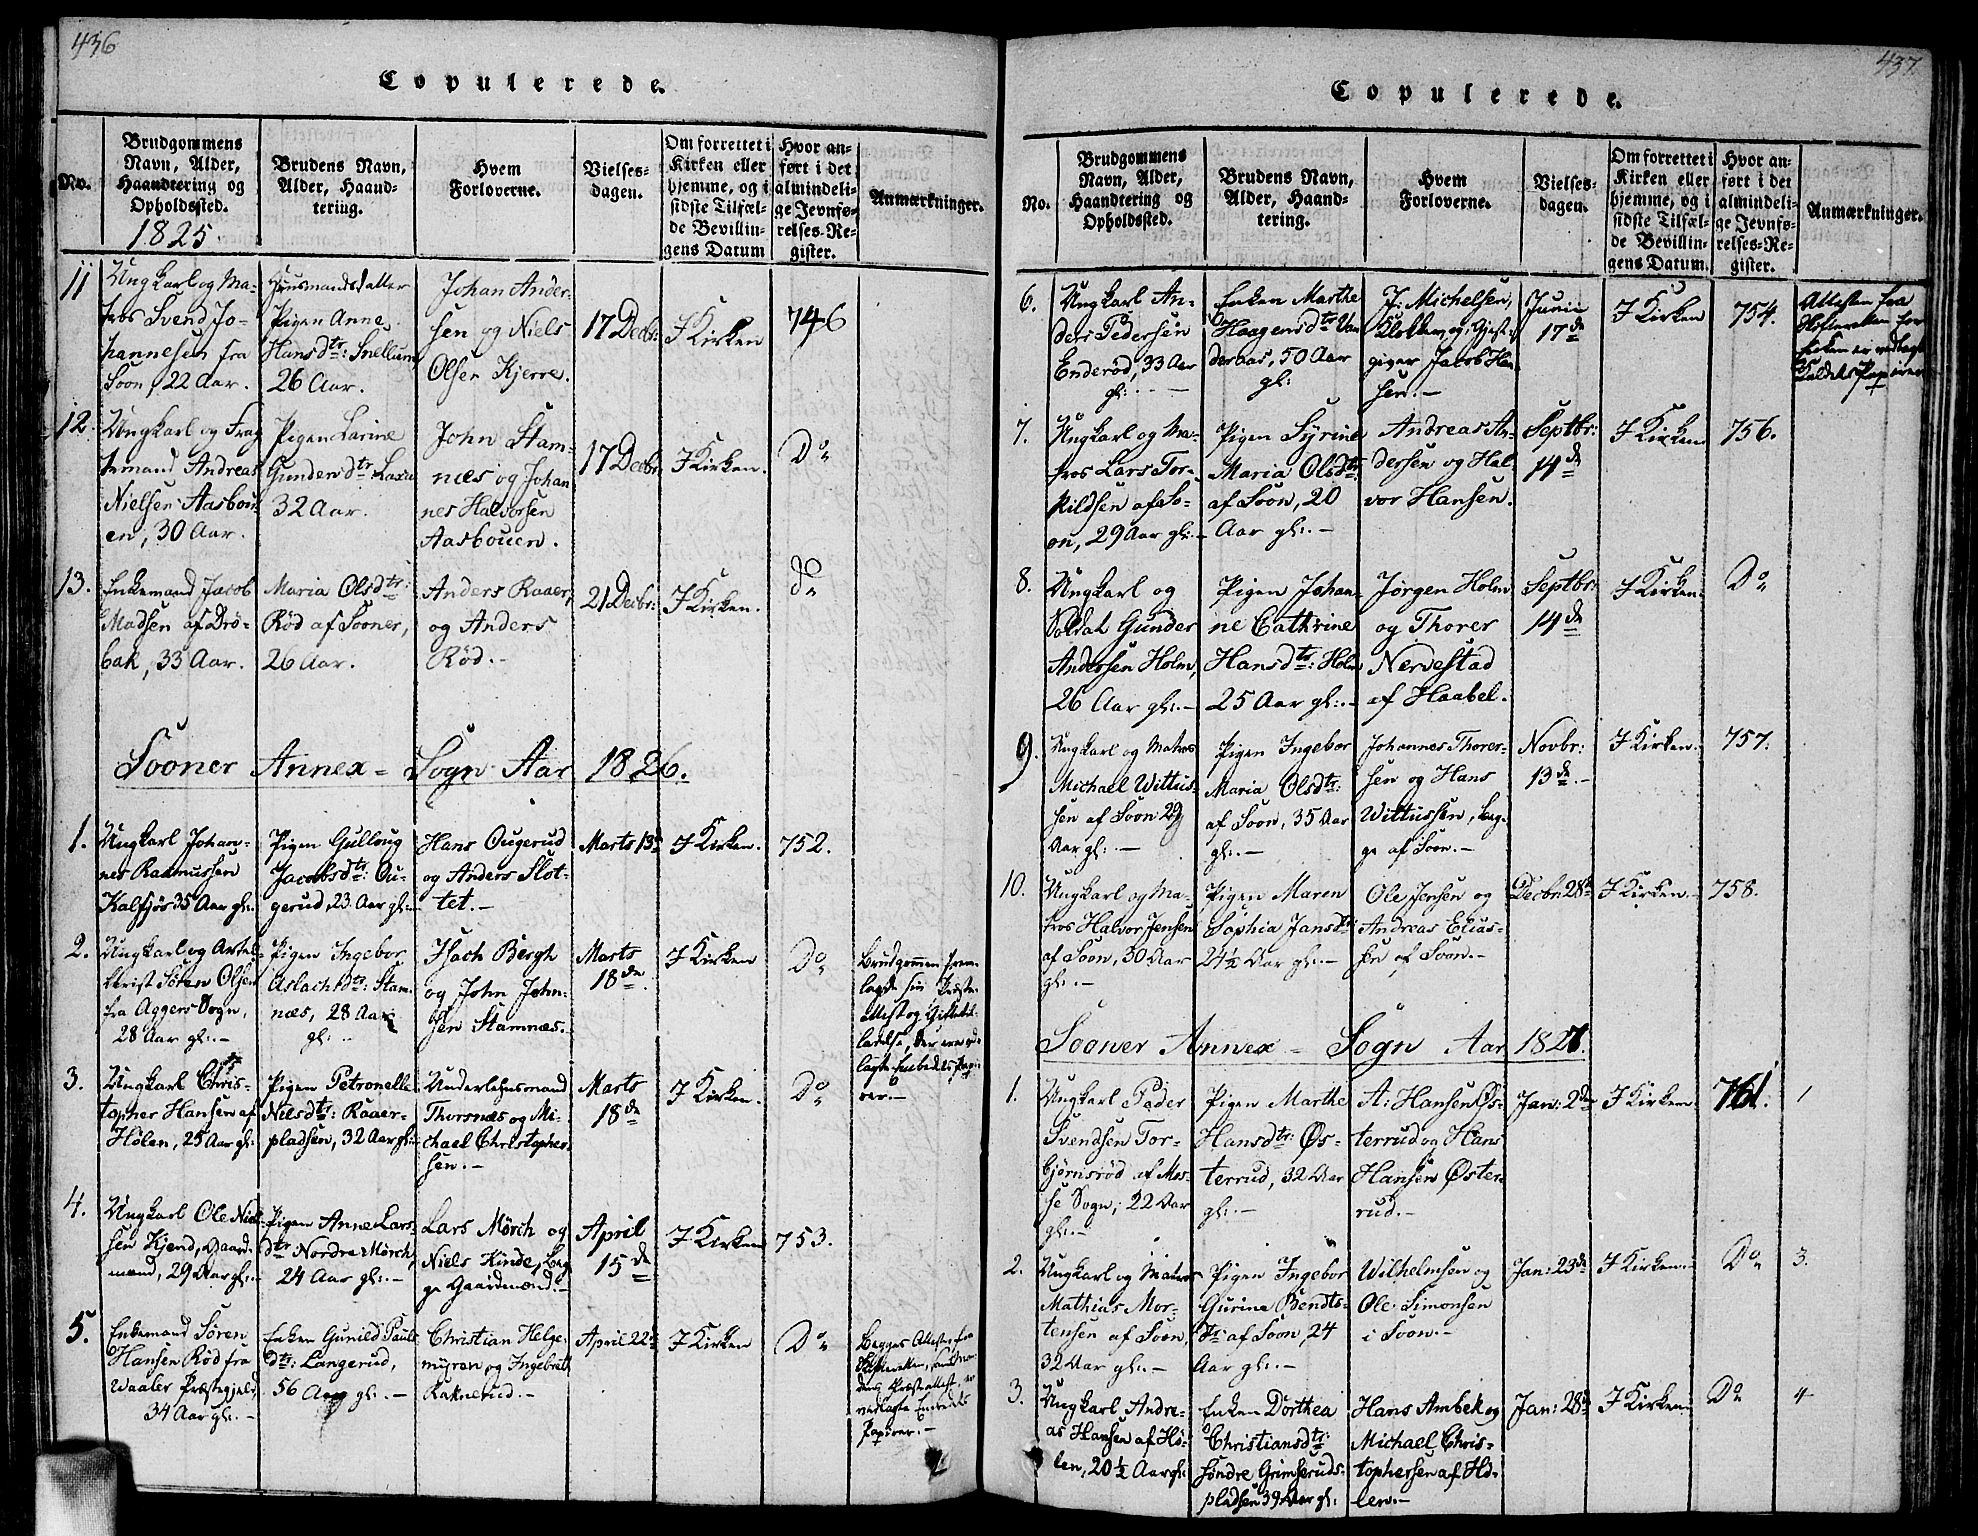 436
Copulerede.
No.
Brudgommens
Navn, Alder,
Haandtering og
Opholdssted.
1825
Brudens Navn,
Alder, Haand-
tering.
Hvem
Forloverne.
Vielses-
dagen.
Om forrettet i
Kirken eller
hjemme, og i
sidste Tilfæl-
de Bevillin-
gens Datum
Hvor an-
ført i det
almindeli-
ge Jevnfø-
relses-Re-
gister.
Anmærkninger.
11
Ungkarl og Ma-
tros Svend Jo-
hannesen fra
Soon, 22 Aar.
Huusmandsdatter
Pigen Anne
Hansdtr: Snellum
26 Aar.
Johan Ander-
sen og Niels
Olsen Kjerre.
17 Decbr:
I Kirken
746
12.
Ungkarl og
Andreas
Nielsen Aasbou-
en, 30 Aar.
Pigen Larine
Gundersdtr
32 Aar.
John Stam-
næs og Johan
nes Halvorsen
Aasbouen.
17 Decbr
I Kirken.
Do
13.
Enkemand Jacob
Madsen af Drö-
bak, 33 Aar.
Maria Olsdtr:
Röd af Sooner,
26 Aar.
Anders Raaer,
og Anders
Röd.-
21 Decbr:
I Kirken.
do
Sooner Annex - Sogn Aar 1826.
1.
Ungkarl Johan-
nes Rasmussen
Kalfjös 35 Aar gl:.
Pigen Gulloug
Jacobsdtr: Ou-
gerud, 23 Aar gl:-
Hans Ougerud
og Anders Slot-
tet.-
Marts 13de
I Kirken.
752.
2.
Ungkarl og
Sören Olsen
fra Aggers Sogn,
28 Aar gl:.-
Pigen Ingebor
Aslachsdtr: Stam-
næs, 28 Aar
gl:.-
Isach Bergh
og John John-
sen Stamnæs.-
Marts
18de
I Kirken
Do
Brudgommen frem-
lagde sin Præste-
attest og
3.
Ungkarl Chris-
topher Hansen af
Hölen, 25 Aar gl:
Pigen Petronelle
Nilsdtr: Raaer-
pladsen, 32 Aar gl:
Underlehnsmand
Thorsnæs og Mi-
chael Christopher-
sen.-
Marts
18de
I Kirken.
Do
4.
Ungkarl Ole Niel-
sen Kjend, Gaard-
mand, 29 Aar gl:.
Pigen Anne Lars-
dtr Nordre Mörch,
24 Aar gl:.-
Lars Mörch og
Niels Kinde, Beg-
ge Gaardmænd.-
April
15de
I Kirken
753.
5.
Enkemand Sören
Hansen Röd fra
Waaler Præstegjeld,
34 Aar gl:.-
Enken Gunild Pauls
dtr: Langerud,
56 Aar gl:.-
Christian Helge-
myren og Ingebret
Raknerud.-
April 22de
I Kirken
Do
Begges Attester fra
Skifteretten,
Papirer.-
437
Copulerede.
No.
Brudgommens
Navn, Alder,
Haandtering og
Opholdssted.
Brudens Navn,
Alder, Haand-
tering.
Hvem
Forloverne.
Vielses-
dagen.
Om forrettet i
Kirken eller
hjemme, og i
sidste Tilfæl-
de Bevillin-
gens Datum.
Hvor an-
ført i det
almindeli-
ge Jevnfø-
relses-Re-
gister.
Anmærkninger.
6.
Ungkarl An-
ders Pedersen
Enderöd, 33 Aar
gl:.-
Enken Marthe
Haagensdtr Van
deraas, 50 Aar
gl:
J. Michelsen,
Klokker, og Gjest-
giver Jacob Han-
sen.-
Junii
17de
I Kirken
754.
Attesten fra
Skifteretten for
Enken er vedlagt
Kaldets Papirer
7.
Ungkarl og Ma-
tros Lars Tor-
kildsen af So-
on, 29 Aar gl:.-
Pigen Syrine
Maria Olsdtr:
af Soon, 20
Aar gl:.-
Andreas An-
dersen og Hal-
vor Hansen.
Septbr:
14de
I Kirken
756.
8.
Ungkarl og
Soldat Gunder
Andersen Holm,
26 Aar gl:.-
Pigen Johan-
ne Cathrine
Hansdtr: Holm
25 Aar gl:.-
Jörgen Holm
og Thorer
Nervestad
af Haabel.
Septbr:
14de
I Kirken
Do
9.
Ungkarl og Matros
Michael Wittus-
sen af Soon 29
Aar gl:.-
Pigen Ingebor
Maria Olsdtr:
af Soon, 35 Aar
gl:.-
Johannes Thorer-
sen og Hans
Wittussen, beg-
ge af Soon.-
Novbr:
13de.-
I Kirken.
757.
10.
Ungkarl og Ma-
tros Halvor Jensen
af Soon, 30 Aar
gl:.-
Pigen Maren
Sophia Jansdtr
24½ Aar gl:.-
Ole Jensen og
Andreas Elias-
sen af Soon.-
Decbr: 28de
I Kirken.-
758.
Sooner Annex - Sogn Aar 1827.
1.
Ungkarl Peder
Svendsen Tor-
björnsröd af Mos-
se Sogn, 22 Aar
gl:.-
Pigen Marthe
Hansdtr: Øs-
terrud, 32 Aar
gl:.-
A: Hansen Øs-
terrud og Hans
Hansen Øster-
rud.-
Jan: 2den
I Kirken.
761.
1
2.
Ungkarl og Matros
Mathias Mor-
tensen af Soon,
32 Aar gl:.-
Pigen Ingebor
Gurina Bendts-
dtr af Soon, 24
Aar gl:.-
Wilhelmsen og
Ole Simonsen
i Soon.-
Jan: 23de
I Kirken.-
Do
3.
3.
Ungkarl Andre-
as Hansen af Hö-
len, 20½ Aar gl:
Enken Dorthea
Christiansdtr:
söndre Grimserüds-
pladsen 39 Aar gl:.
Hans Ambek og
Michael Chris-
tophersen af Hö-
len.-
Jan: 28de
I Kirken.
Do
4